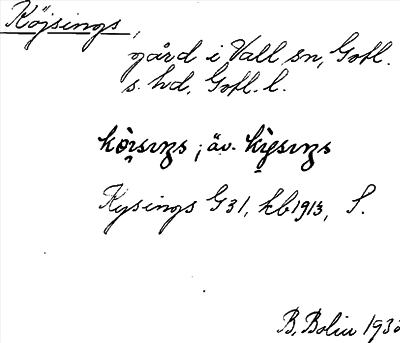 Köjsings,
gård i Vall sn, Gotl.
s. hd, Gotl. l.
kòi̯sıŋs; äv. kỳsıŋs
Kysings G 31, kb 1913, S.
B. Bolin 193